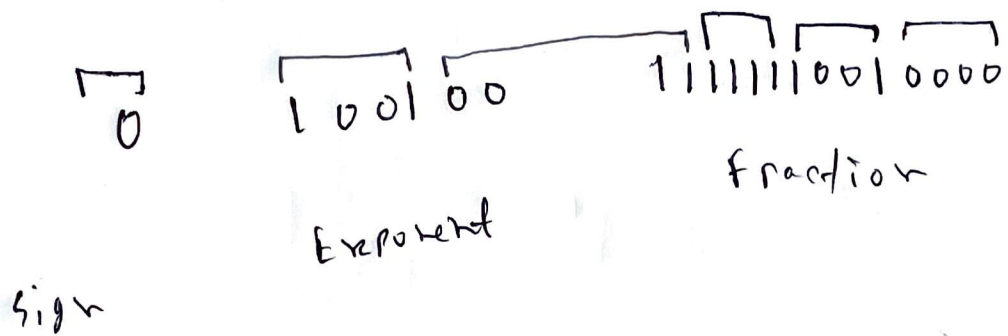 0 1 0 0 1 0 0 1 1 1 1 1 1 1 0 0 1 0 0 0 0
Fraction
Exponent
Sign